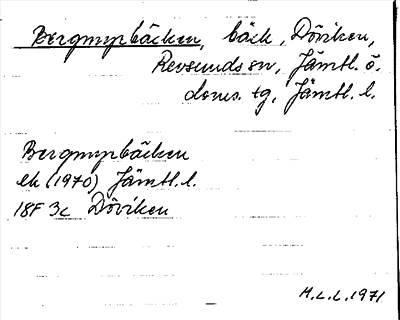 Bergmyrbäcken, bäck, Döviken,
Revsunds sn, Jämtl. ö.
doms. tg, Jämtl. l.
Bergmyrbäcken
ek (1970) Jämtl. l.
18F 3c Döviken
H.L.L. 1971